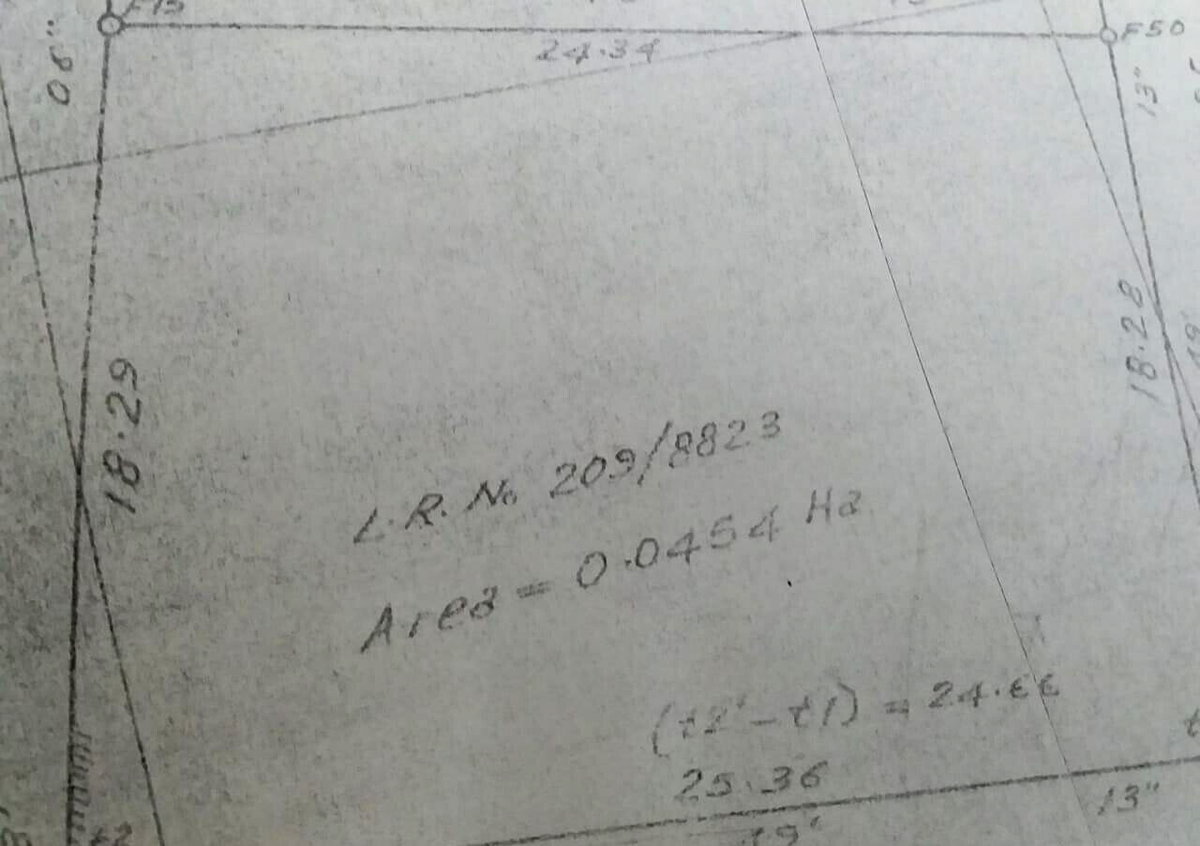 F50
24.34
06"
13"
18.29
18.28
L.R. No 209/8823
Area = 0.0454 Ha
(t2'-t1) = 24.66
25.36
13"
19'
t2